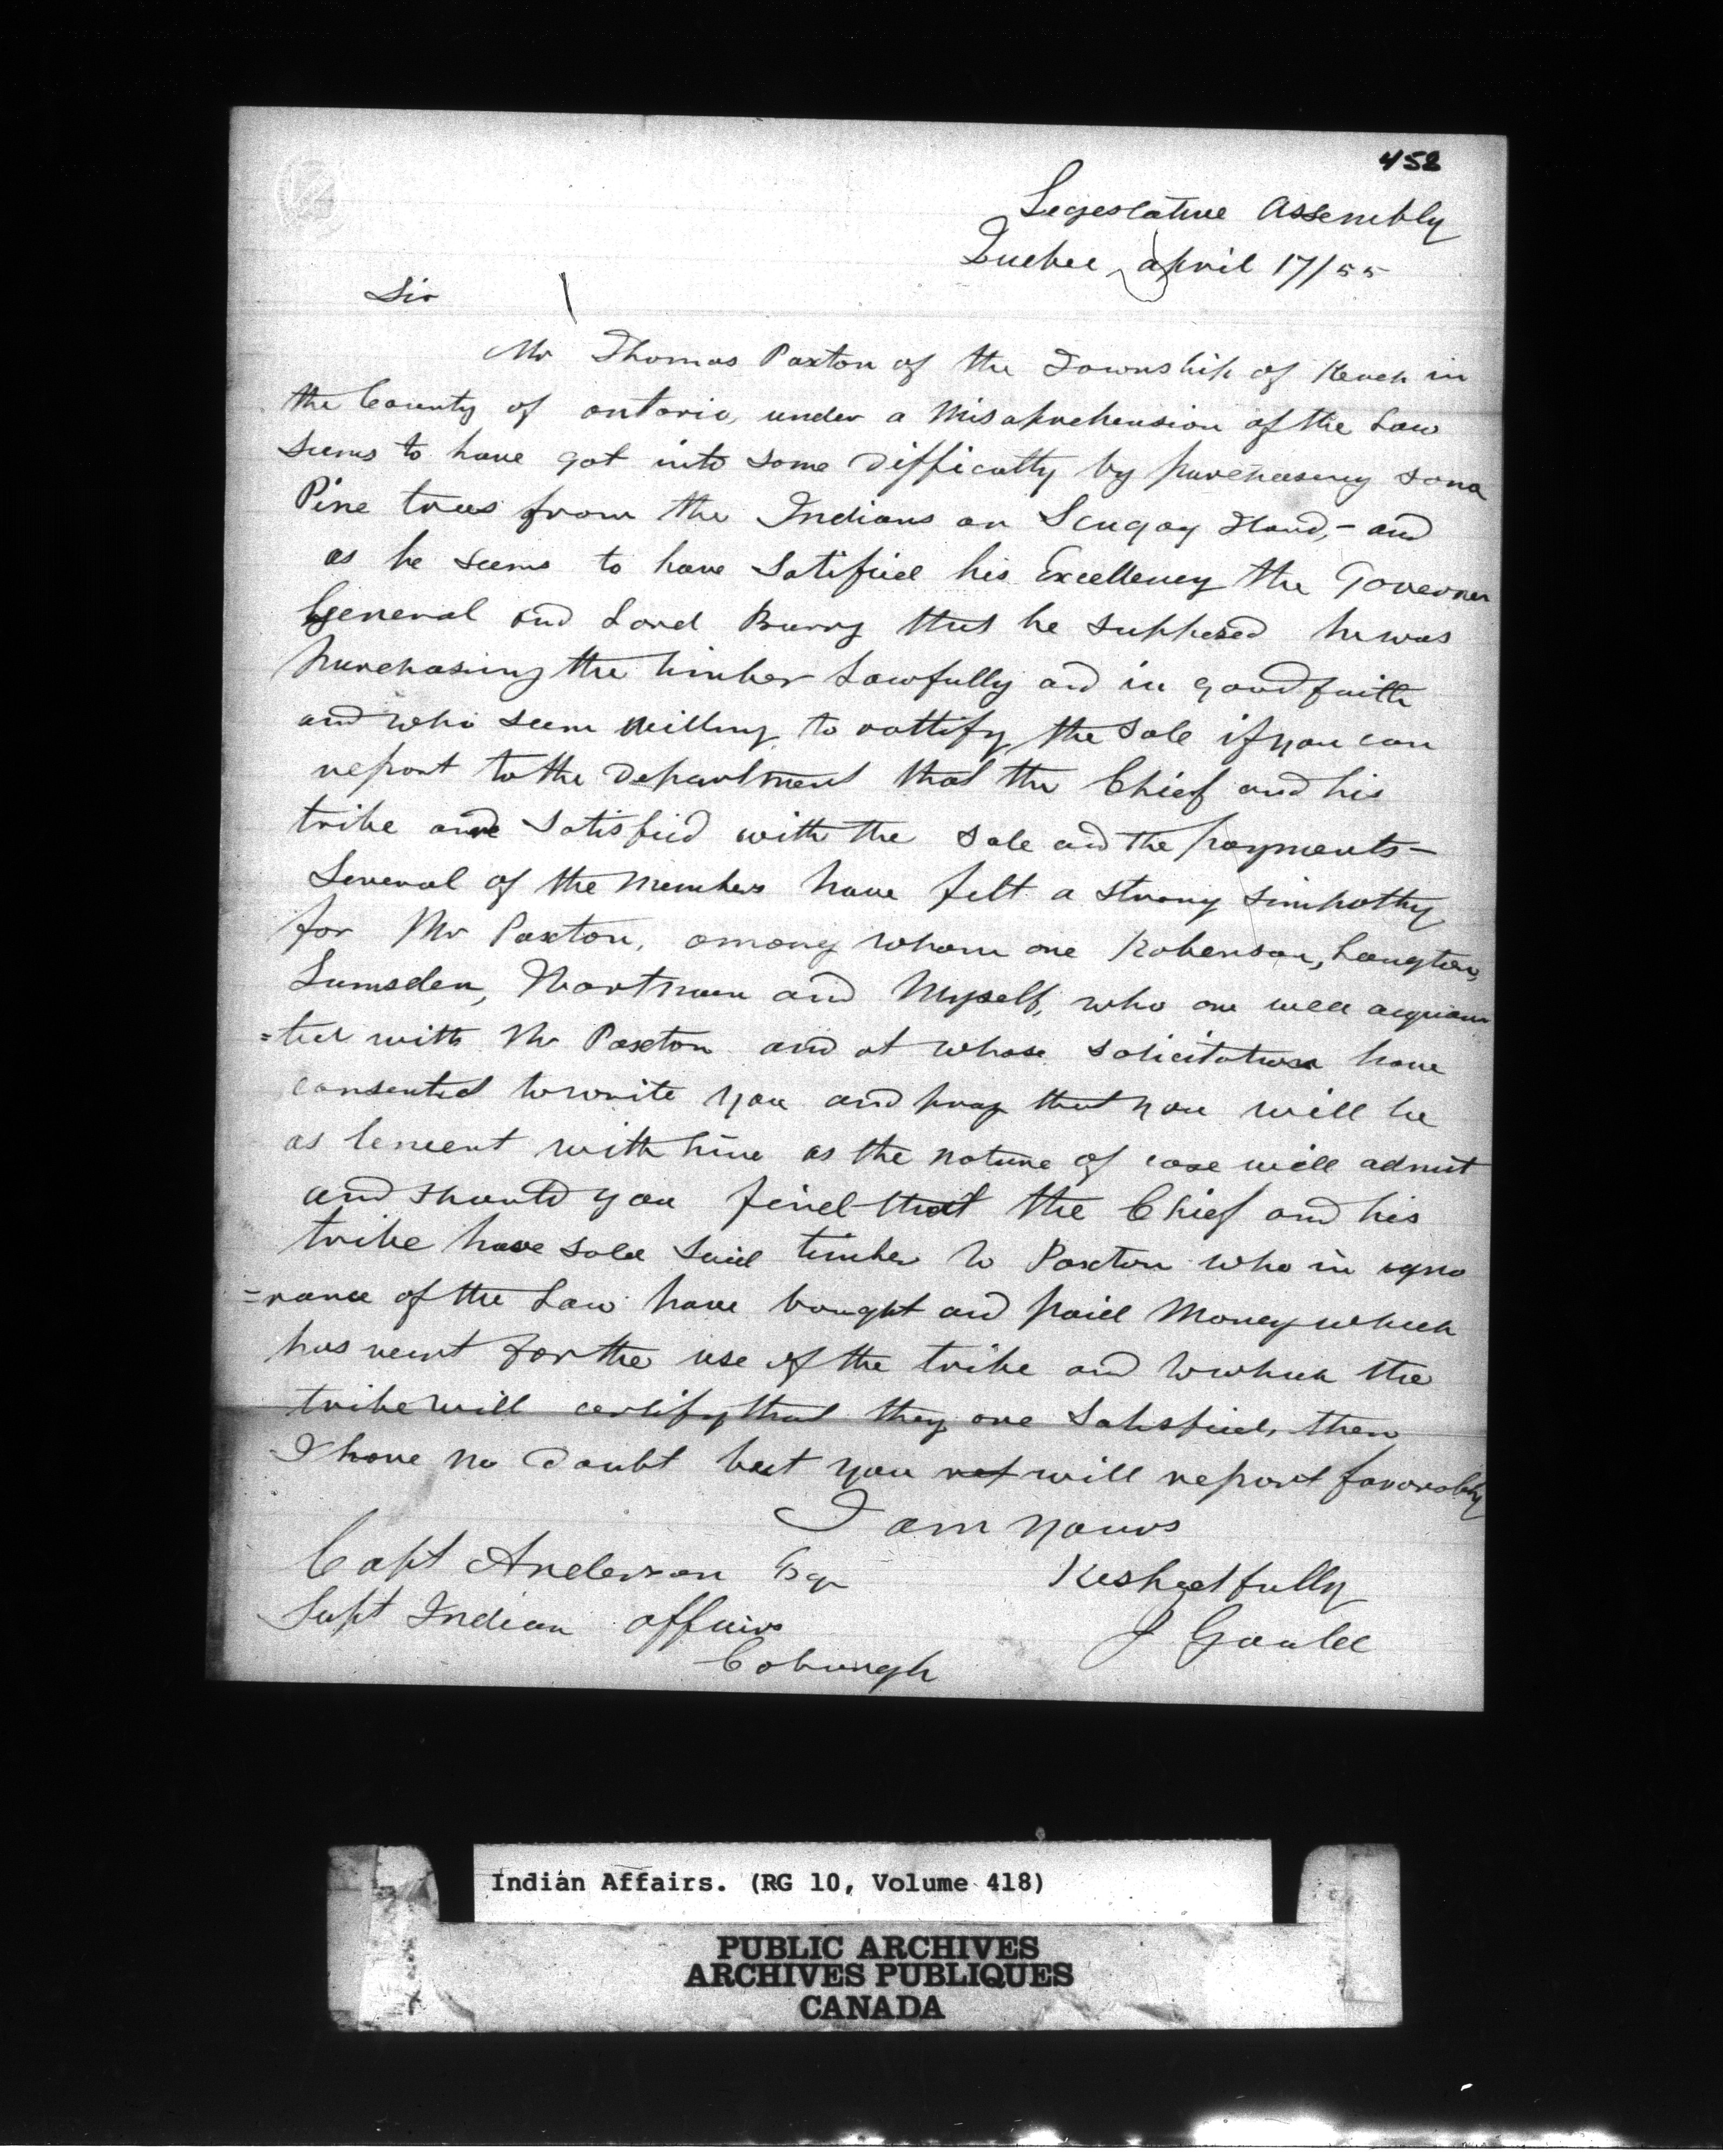 458
Legeslative Assembly
Quebec april 17/55
Sir
Mr Thomas Paxton of the Township of Reach in
the County of ontario, under a Misaprehension of the Law
seems to have got into some difficulty by purchasing some
Pine trees from the Indians on Scugog Iland, - and
as he seems to have Satified his Excellency the Governer
General and Lord Burry that he supposed he was
purchasing the timber Lawfully and in good faith
and who seem willing to rattify the sale if you can
report to the Department that the Chief and his
tribe are Satisfied with the sale and the payments -
Several of the members have felt a strong simpathy
for Mr Paxton, among whom are Robenson, Langton,
Lumsden, Wortman and Myself, who are well acquain
=ted with Mr Paxton and at whose solicitation have
consented to write you and pray that you will be
as lenient with him as the nature of case will admit
and should you find that the Chief and his
tribe have sold said timber to Paxton who in igno
=rance of the Law have bought and paid Money which
has went for the use of the tribe and to which the
tribe will certify that they are Satisfied, then
I have no doubt but you will report favorably
I am yours
Respectfully
J Gould
Capt Anderson Esqr
Supt Indian affairs
Cobourgh
Indian Affairs. (RG 10, Volume 418)
PUBLIC ARCHIVES
ARCHIVES PUBLIQUES
CANADA